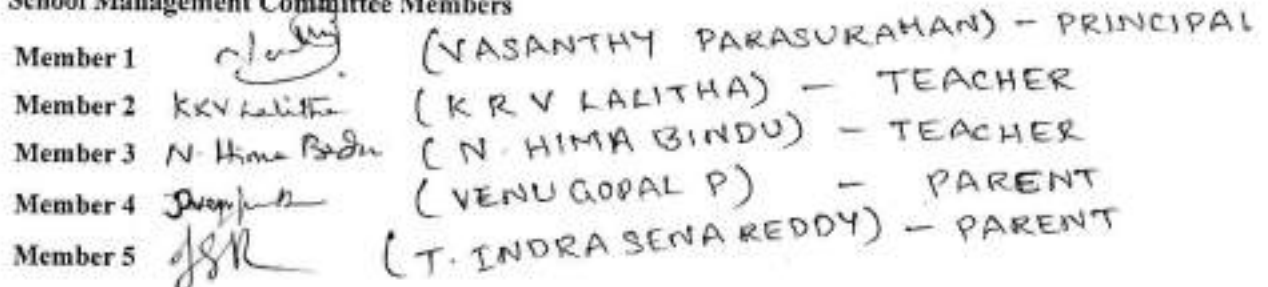 School Management Committee Members
Member 1 (VASANTHY PARASURAMAN) - PRINCIPAL
Member 2 KRV Lalitha (K R V LALITHA) - TEACHER
Member 3 N. Hima Bindu (N. HIMA BINDU) - TEACHER
Member 4 (VENU GOPAL P) - PARENT
Member 5 JSR (T. INDRA SENA REDDY) - PARENT